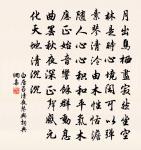 月出鳥栖盡寂然坐空
林是時心境閑可以彈
素琴清泠由木性恬澹
隨人心心積和平氣木
應正始音響餘群動息
曲罷秋夜深正聲感元
化天地清沉沉
白居易清夜琴興詞典
網書